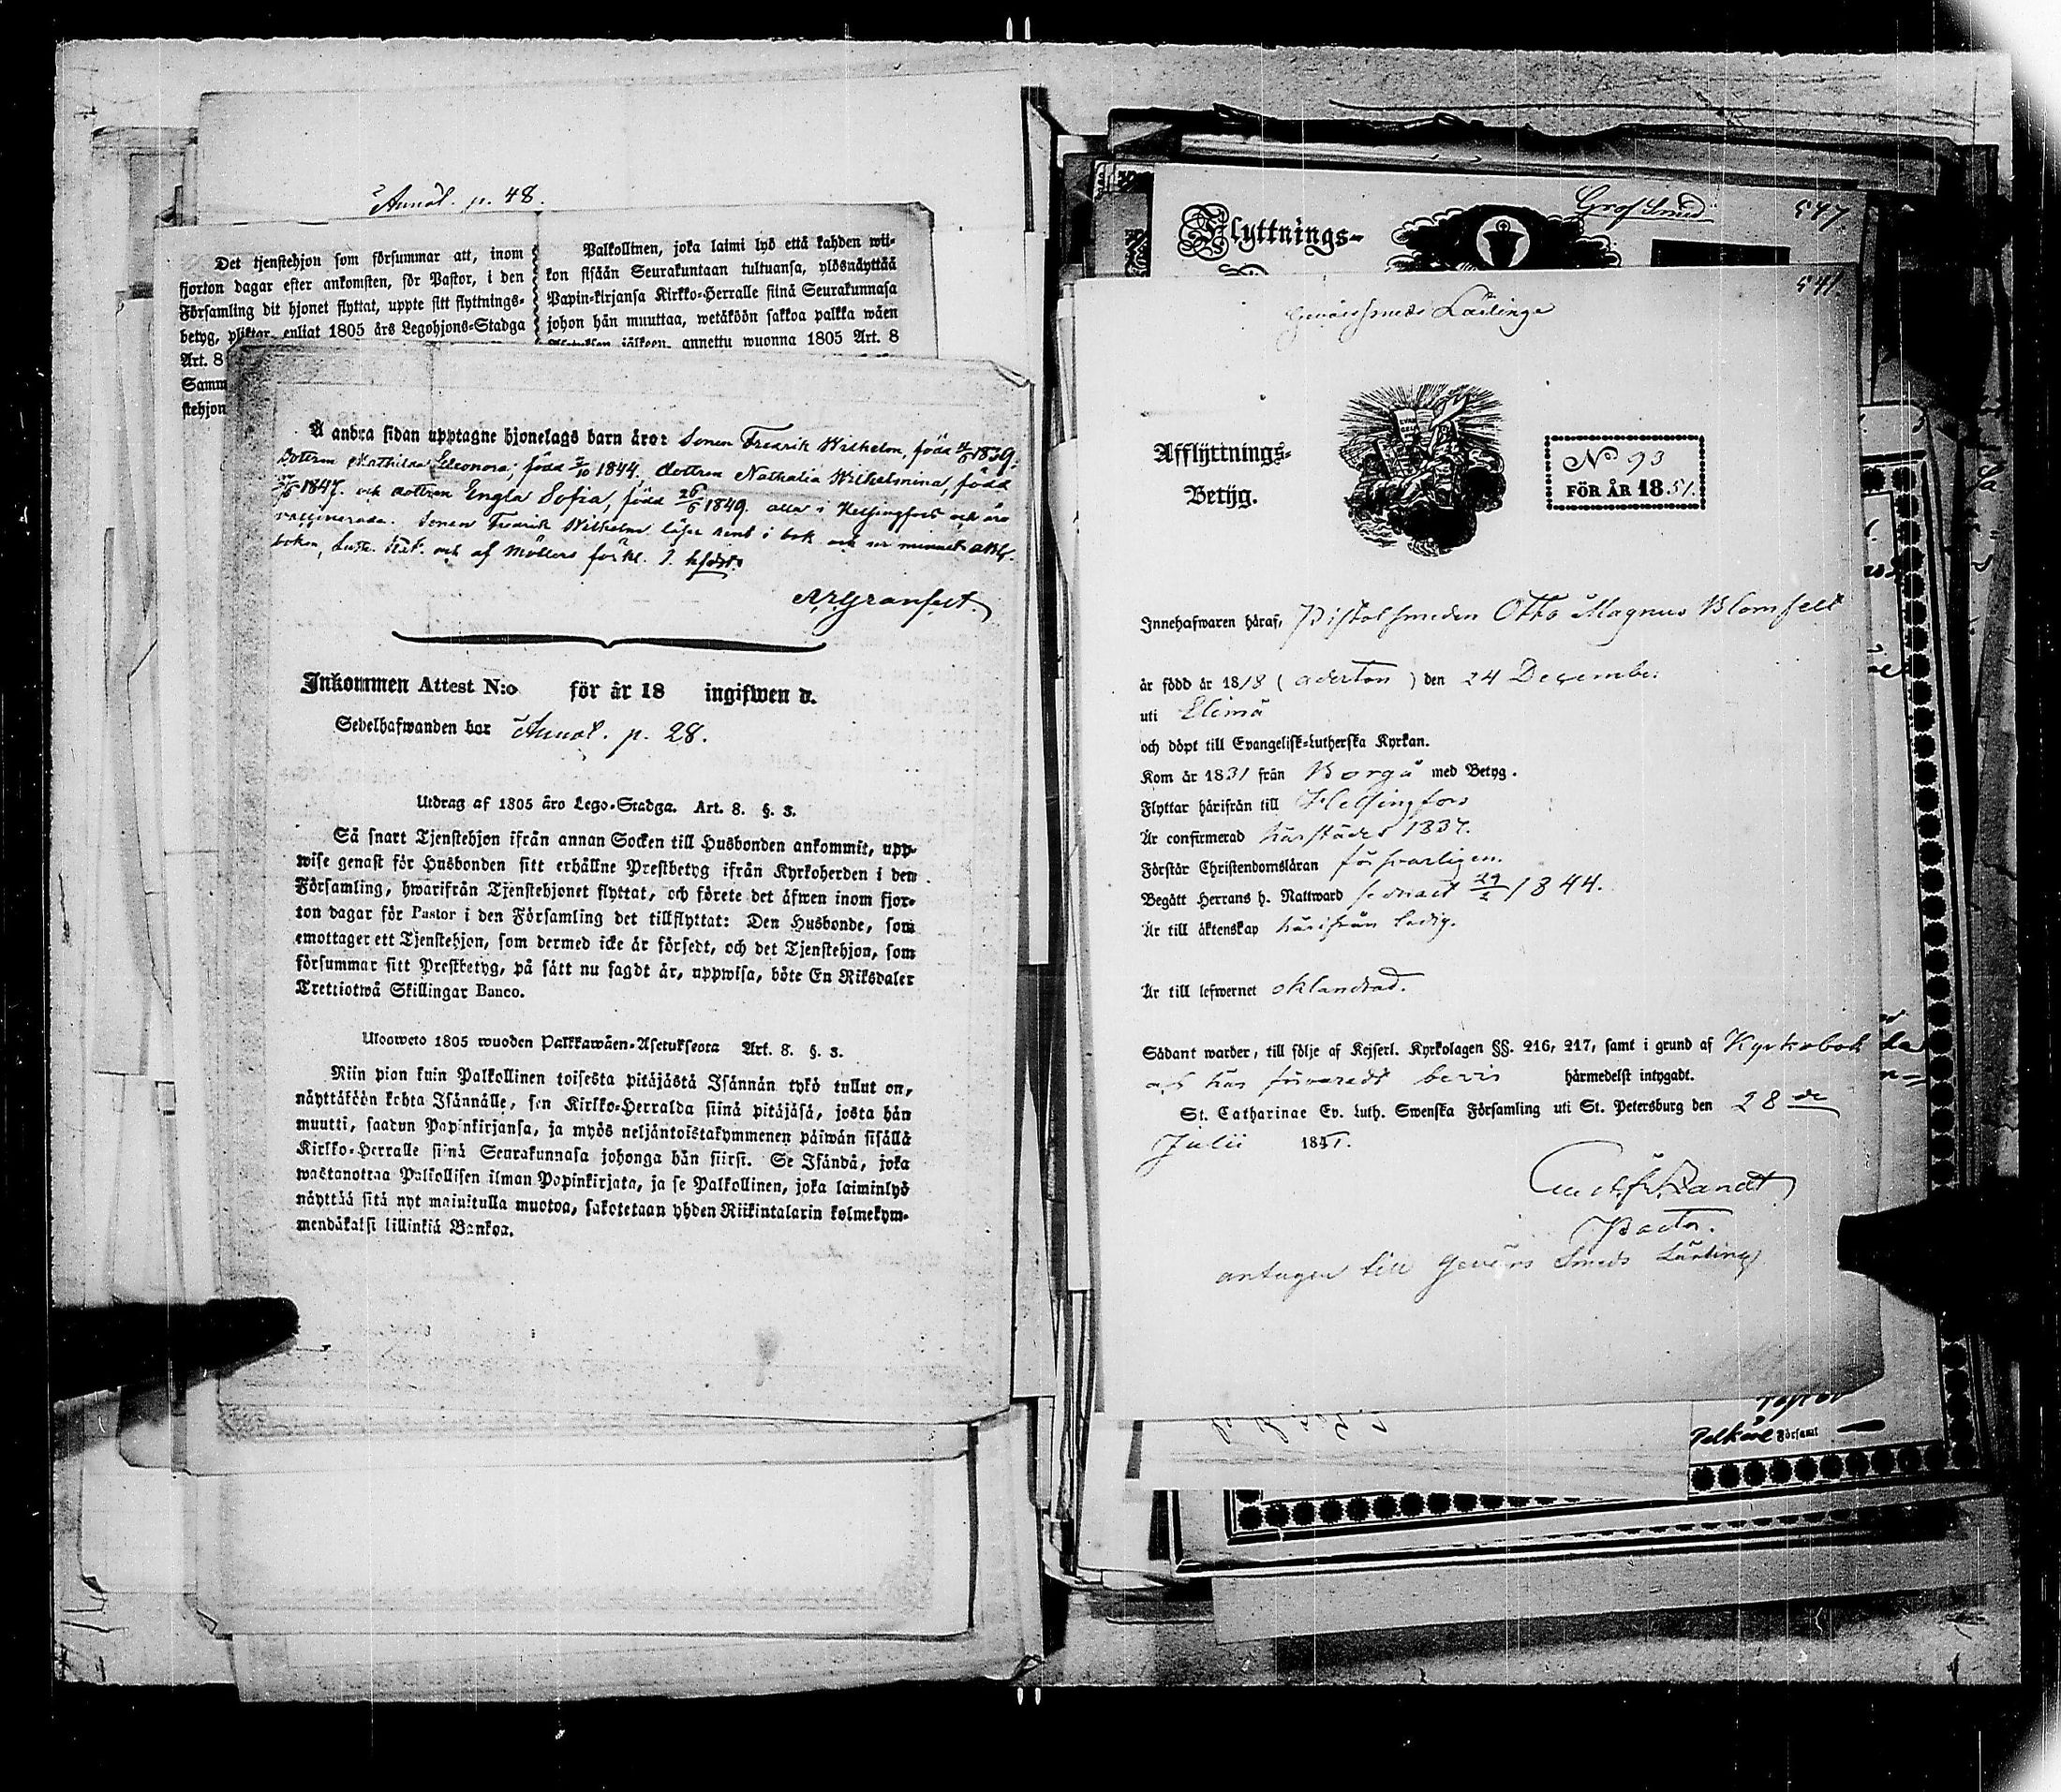 Annot. p. 48.
Det tjenstehjon som försummar att, inom
fjorton dagar efter ankomsten, för Pastor, i den
Församling dit hjonet flyttat, uppte sitt flyttnings-
betyg, pliktar, enligt 1805 års Legohjons-Stadga
Art. 8
Samm
stehjon
Palkollinen, joka laimi lyö että kahden wii-
kon sisään Seurakuntaan tultuansa, ylösnäyttää
Papin-kirjansa Kirkko-Herralle siinä Seurakunnasa
johon hän muuttaa, wetäköön sakkoa palkka wäen
jälkeen, annettu wuonna 1805 Art. 8
Å andra sidan upptagne hjonelags barn äro: Sonen Fredrik Wilhelm, född 1839.
Dottren Mathilda Eleonora, född 1844, dottren Nathalia Wilhelmina, född
1847. och dottren Engla Sofia, född 26/6 1849. alla i Helsingfors och äro
vaccinerade. Sonen Fredrik Wilhelm läser rent i bok och ur minnet ABC-
boken, Luth. Kat. och af Möllers förkl.
A. R. Granfelt.
Inkommen Attest N:o för år 18 ingifwen d.
Sedelhafwanden bor Annot. p. 28.
Utdrag af 1805 års Lego-Stadga. Art. 8. §. 3.
Så snart Tjenstehjon ifrån annan Socken till Husbonden ankommit, upp-
wise genast för Husbonden sitt erhållne Prestbetyg ifrån Kyrkoherden i den
Församling, hwarifrån Tjenstehjonet flyttat, och förete det äfwen inom fjor-
ton dagar för Pastor i den Församling det tillflyttat: Den Husbonde, som
emottager ett Tjenstehjon, som dermed icke är försedt, och det Tjenstehjon, som
försummar sitt Prestbetyg, på sätt nu sagdt är, uppwisa, böte En Riksdaler
Trettiotwå Skillingar Banco.
Uloosweto 1805 wuoden Palkkawäen-Asetuksesta Art. 8. §. 3.
Niin pian kuin Palkollinen toisesta pitäjästä Isännän tykö tullut on,
näyttäköön kohta Isännälle, sen Kirkko-Herralda siinä pitäjäsä, josta hän
muutti, saadun Papinkirjansa, ja myös neljäntoistakymmenen päiwän sisällä
Kirkko-Herralle siinä Seurakunnasa johonga hän siirsi. Se Isändä, joka
wastanottaa Palkollisen ilman Papinkirjata, ja se Palkollinen, joka laiminlyö
näyttää sitä nyt mainitulla muotoa, sakotetaan yhden Riikintalarin kolmekym-
mendäkaksi killinkiä Bankoa.
Flyttnings-
Grofsmed
547.
541.
Gevärssmeds Lärling
Afflyttnings-
Betyg.
No 93
FÖR ÅR 1851.
Innehafwaren häraf, Pistolsmeden Otto Magnus Blomfelt
är född år 1818 (aderton) den 24 December
uti Elimä
och döpt till Evangelisk-Lutherska Kyrkan.
Kom år 1831 från Borgå med Betyg.
Flyttar härifrån till Helsingfors
Är confirmerad härstädes 1837.
Förstår Christendomsläran försvarligen.
Begått Herrans h. Nattward senast 29/2 1844.
Är till äktenskap härifrån ledig.
Är till lefwernet oklandrad.
Sådant warder, till följe af Kejserl. Kyrkolagen §§. 216, 217, samt i grund af Kyrkobok
och här förvaradt bevis härmedelst intygadt.
St. Catharinae Ev. Luth. Swenska Församling uti St. Petersburg den 28de
Julii 1851.
Pastor.
antagen till Gevärs Smeds Lärling
Pelkäne Församl